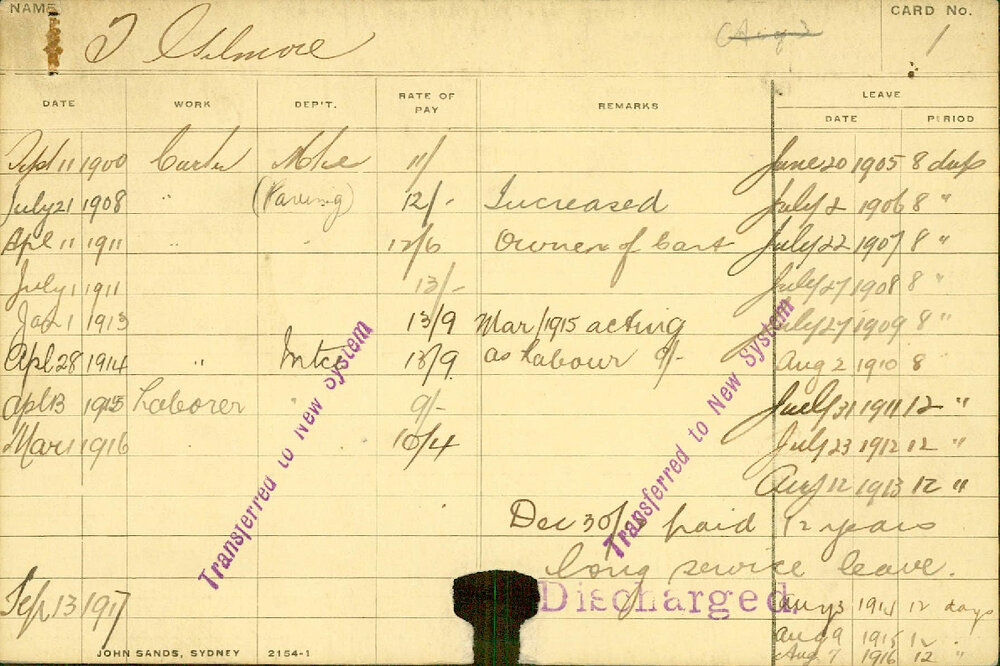 NAME T Gilmore Aug 2 CARD No. 1
DATE WORK DEP'T. RATE OF PAY REMARKS LEAVE
DATE PERIOD
Sept 11 1900 Carter Mtce 11/ June 20 1905 8 days
July 21 1908 " (Paving) 12/- Increased July 2 1906 8 "
Apl 11 1911 " " 12/6 Owner of Cart July 22 1907 8 "
July 1 1911 13/- July 27 1908 8 "
Jan 1 1913 13/9 Mar/1915 acting July 27 1909 8 "
Apl 28 1914 " Mtce 13/9 as Labour 9/- Aug 2 1910 8
Apl 13 1915 Laborer " 9/- July 31 1911 12 "
Mar 1 1916 10/4 July 23 1912 12 "
Aug 12 1913 12 "
Dec 30/ paid 12 years
long service leave.
Transferred to New System
Transferred to New System
Discharged
Sep 13 1917 Aug 3 1914 12 days
Aug 9 1915 12
Aug 7 1916 12 "
JOHN SANDS, SYDNEY 2154-1